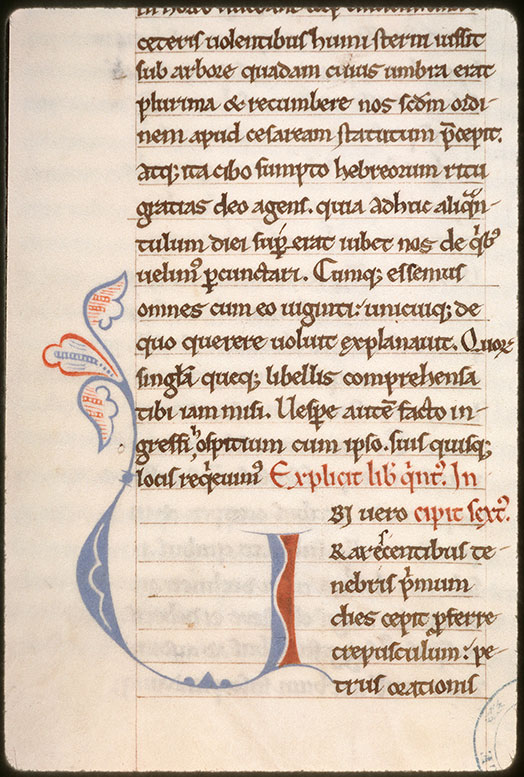 ceteris uolentibus humi sterni iussit
sub arbore quadam cuius umbra erat
plurima & recumbere nos scdm ordi-
nem apud cesaream statutum p̄cepit.
Atq; ita cibo sumpto hebreorum ritu
gratias deo agens. quia adhuc aliqᷓn-
tulum diei suꝑerat iubet nos de qͥbꝰ
uelimꝰ ꝑcunctari. Cumq; essemus
omnes cum eo uiginti: unicuiq; de
quo querere uoluit explanauit. Quoꝝ
singła queq; libellis comprehensa
tibi iam misi. Uespe autē facto in-
gressi ospitium cum ipso. suis quisq;
locis reqͥeuimꝰ Explicit lib qͥntꝰ. In
UBI uero cipit sextꝰ.
Rarescentibus te-
nebris pͥmum
ches cepit ꝓferre
crepusculum: pe-
trus orationis